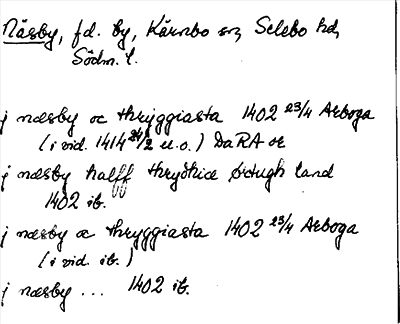 Näsby, fd. by, Kärnbo sn, Selebo hd,
Södm. l.
j næsby oc thryggiasta 1402 23/4 Arboga
(i vid. 1414 24/2 u.o.) DaRA or
j næsby halff thrydhia ørtugh land
1402 ib.
j næsby oc thryggiasta 1402 23/4 Arboga
(i vid. ib.)
j næsby ... 1402 ib.